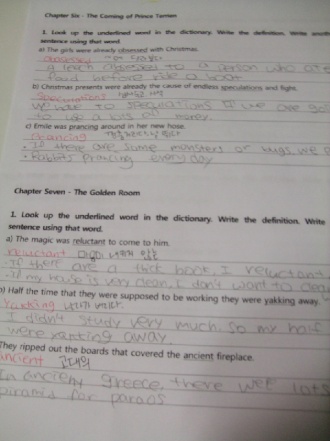 Chapter Six - The Coming of Prince Tarrian
1. Look up the underlined word in the dictionary. Write the definition. Write
sentence using that word.
a) The girls were already obsessed with Christmas.
a to a person who
food before ride a boat
b) Christmas presents were already the cause of endless speculations and fight.
Speculations
We have to speculations if we are go
to use a lots of money.
c) Emile was prancing around in her new hose.
Prancing
If there are some monsters or bugs, we
Rabbits Prancing every day
Chapter Seven - The Golden Room
1. Look up the underlined word in the dictionary. Write the definition. Write
sentence using that word.
a) The magic was reluctant to come to him.
reluctant 마음이 내키지 않는
If there are a thick book, I reluctant
If my house is very clean, I don't want to clean
b) Half the time that they were supposed to be working they were yakking away.
Yakking
I didn't study very much. So my half
were yakking away.
They ripped out the boards that covered the ancient fireplace.
ancient 고대의
In ancieny greece, there wee lots
piramid for paraos